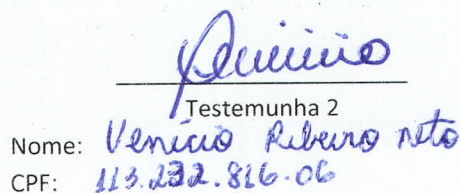 Testemunha 2
Nome: Venício Ribeiro neto
CPF: 113.232.816-06